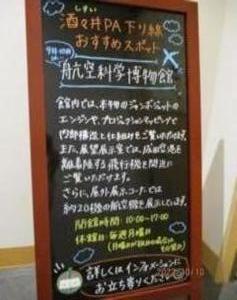 しすい
酒々井PA下り線
おすすめスポット
航空科学博物館
館内では、本物のジャンボジェットの
エンジンや、プロジェクションマッピングで
内部構造と仕組みをご覧いただけます。
また、展望展示室では、成田空港を
離着陸する飛行機を間近に
ご覧いただけます。
さらに、屋外展示コーナーでは
約20機の航空機を展示しています。
開館時間:10:00~17:00
休館日:毎週月曜日
(月曜日が祝日の場合は
その翌日)
詳しくはインフォメーションに
お立ち寄りください
10